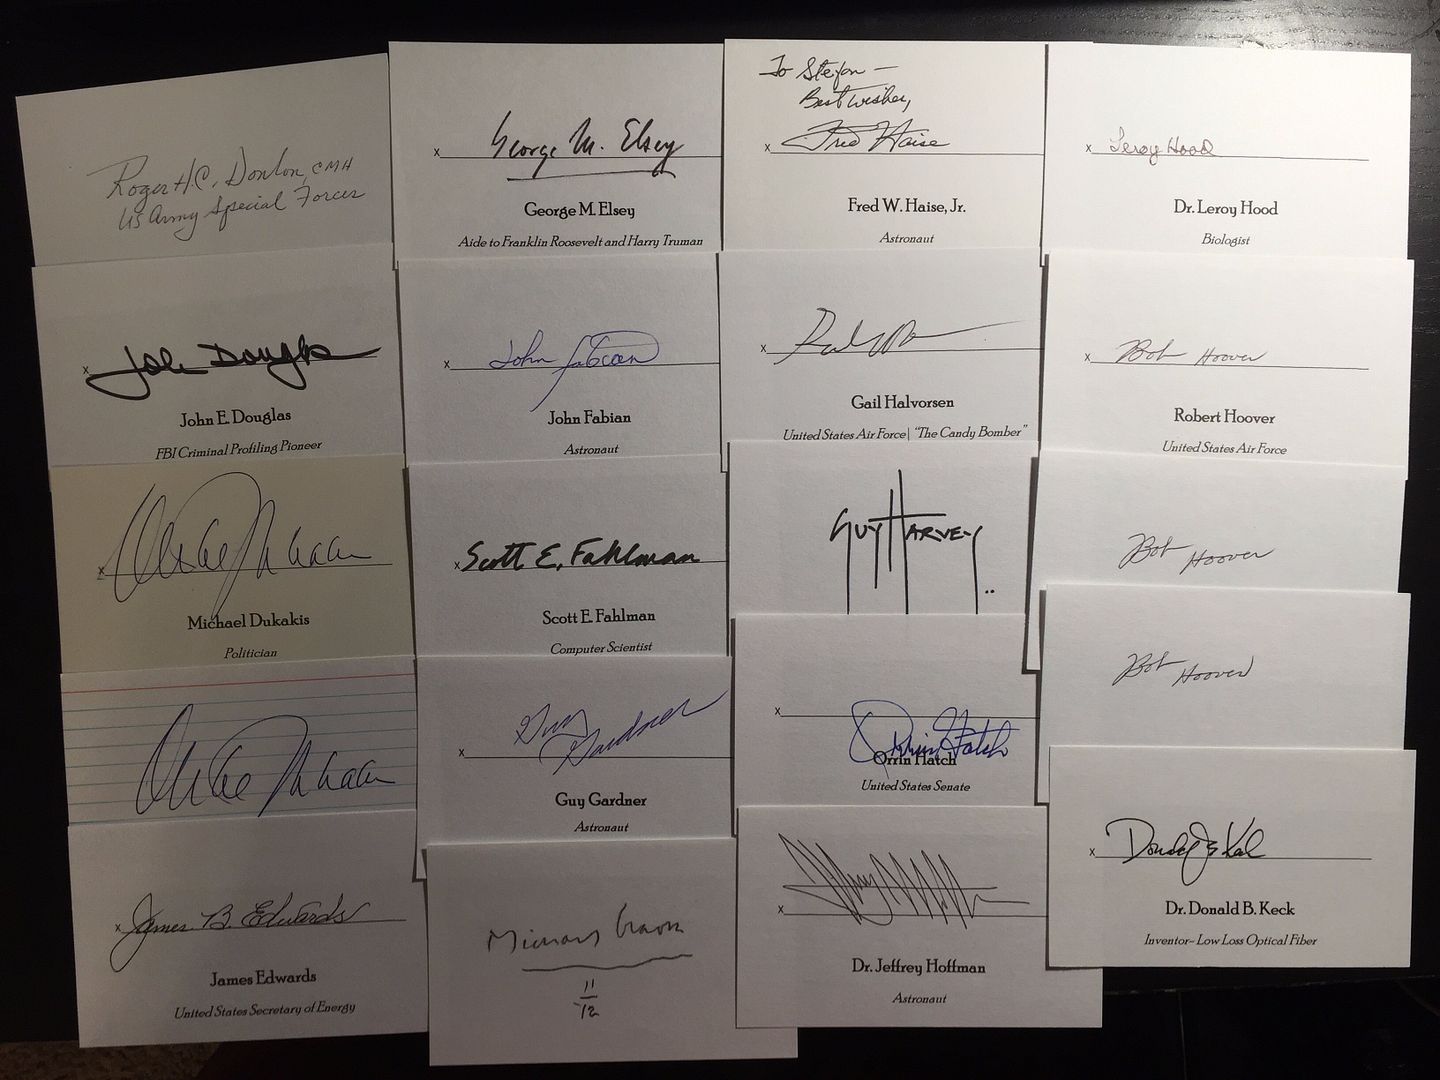 Roger H.C. Donlon, CMH
US Army Special Forces
x John Douglas
John E. Douglas
FBI Criminal Profiling Pioneer
x
Michael Dukakis
Politician
x James B. Edwards
James Edwards
United States Secretary of Energy
x George M. Elsey
George M. Elsey
Aide to Franklin Roosevelt and Harry Truman
x John Fabian
John Fabian
Astronaut
x Scott E. Fahlman
Scott E. Fahlman
Computer Scientist
x Guy Gardner
Guy Gardner
Astronaut
Graves
11
12
To Stefan —
Best wishes,
x Fred Haise
Fred W. Haise, Jr.
Astronaut
x
Gail Halvorsen
United States Air Force | "The Candy Bomber"
GUY HARVEY
x Orrin Hatch
Orrin Hatch
United States Senate
x
Dr. Jeffrey Hoffman
Astronaut
x Leroy Hood
Dr. Leroy Hood
Biologist
x Bob Hoover
Robert Hoover
United States Air Force
Bob Hoover
Bob Hoover
x Donald B Keck
Dr. Donald B. Keck
Inventor- Low Loss Optical Fiber